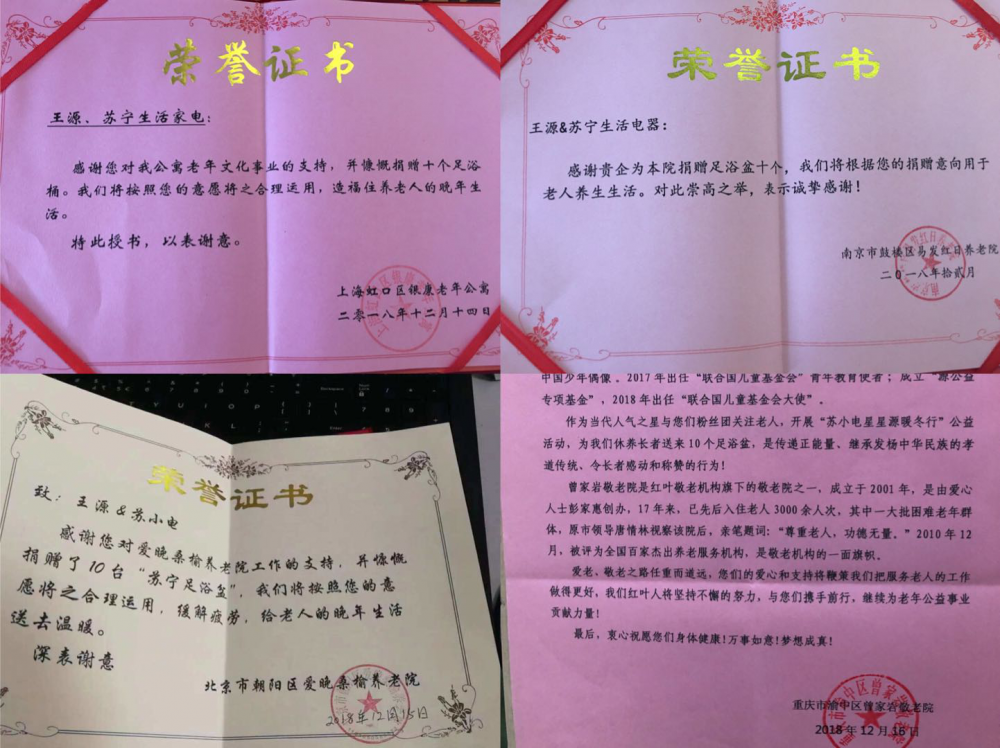 荣誉证书
王源、苏宁生活家电:
感谢您对我公寓老年文化事业的支持，并慷慨捐赠十个足浴
桶。我们将按照您的意愿将之合理运用，造福住养老人的晚年生
活。
特此授书，以表谢意。
上海虹口区银康老年公寓
二零一八年十二月十四日
荣誉证书
王源&苏宁生活电器：
感谢贵企为本院捐赠足浴盆十个，我们将根据您的捐赠意向用于
老人养生生活。对此崇高之举，表示诚挚感谢！
南京市鼓楼区易发红日养老院
二0一八年拾贰月
荣誉证书
致：王源&苏小电
感谢您对爱晚桑榆养老院工作的支持，并慷慨
捐赠了10台“苏宁足浴盆”，我们将按照您的意
愿将之合理运用，缓解疲劳，给老人的晚年生活
送去温暖。
深表谢意
北京市朝阳区爱晚桑榆养老院
2018年12月15日
中国少年偶像。2017年出任“联合国儿童基金会”青年教育使者；成立“源公益
专项基金”，2018年出任“联合国儿童基金会大使”。
作为当代人气之星与您们粉丝团关注老人，开展“苏小电星星源暖冬行”公益
活动，为我们休养长者送来10个足浴盆，是传递正能量、继承发杨中华民族的孝
道传统、令长者感动和称赞的行为！
曾家岩敬老院是红叶敬老机构旗下的敬老院之一，成立于2001年，是由爱心
人士彭家惠创办，17年来，已先后入住老人3000余人次，其中一大批困难老年群
体，原市领导唐情林视察该院后，亲笔题词：“尊重老人，功德无量。”2010年12
月，被评为全国百家杰出养老服务机构，是敬老机构的一面旗帜。
爱老、敬老之路任重而道远，您们的爱心和支持将鞭策我们把服务老人的工作
做得更好，我们红叶人将坚持不懈的努力，与您们携手前行，继续为老年公益事业
贡献力量！
最后，衷心祝愿您们身体健康！万事如意！梦想成真！
重庆市渝中区曾家岩敬老院
2018年12月16日